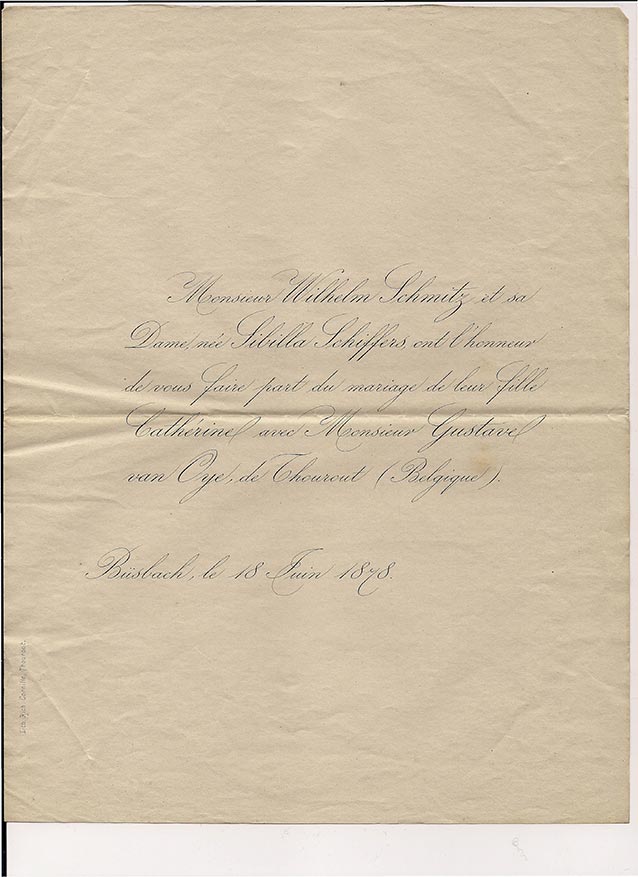 Monsieur Wilhelm Schmitz et sa
Dame, née Sibilla Schiffers, ont l'honneur
de vous faire part du mariage de leur fille
Catherine avec Monsieur Gustave
van Oye, de Thourout (Belgique).
Büsbach, le 18 Juin 1878.
Lith. Thourout.